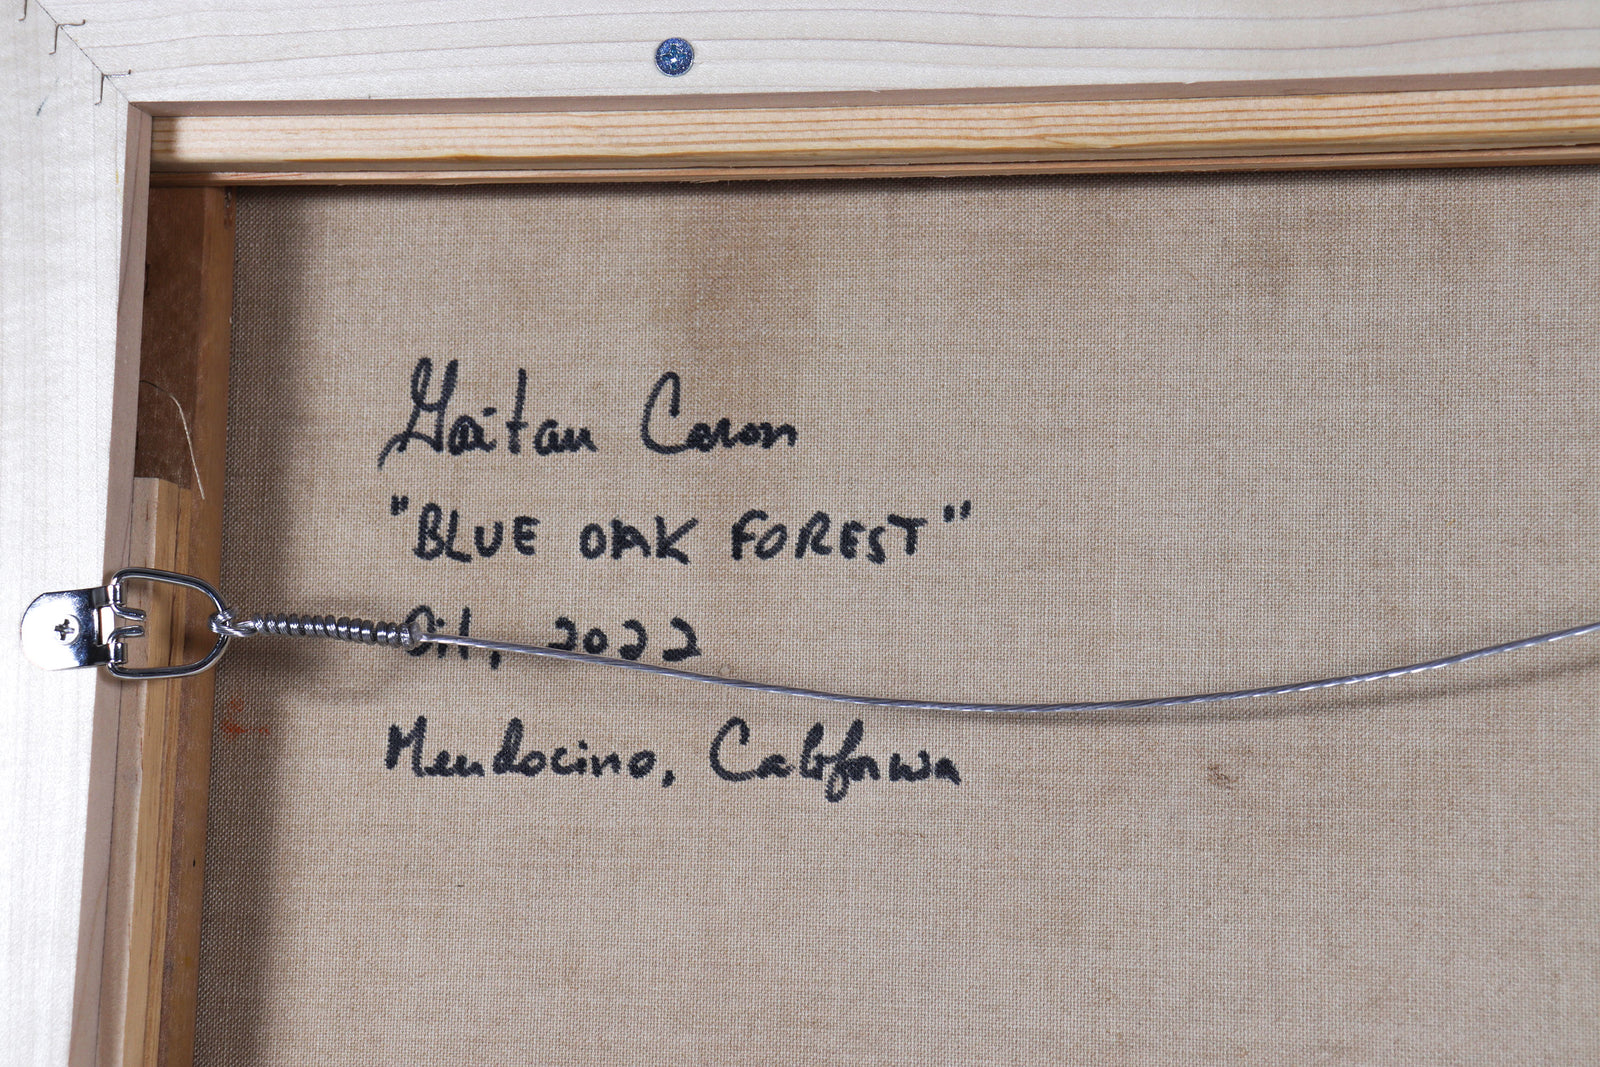 Gaitan Caron
"BLUE OAK FOREST"
Oil, 2022
Mendocino, California